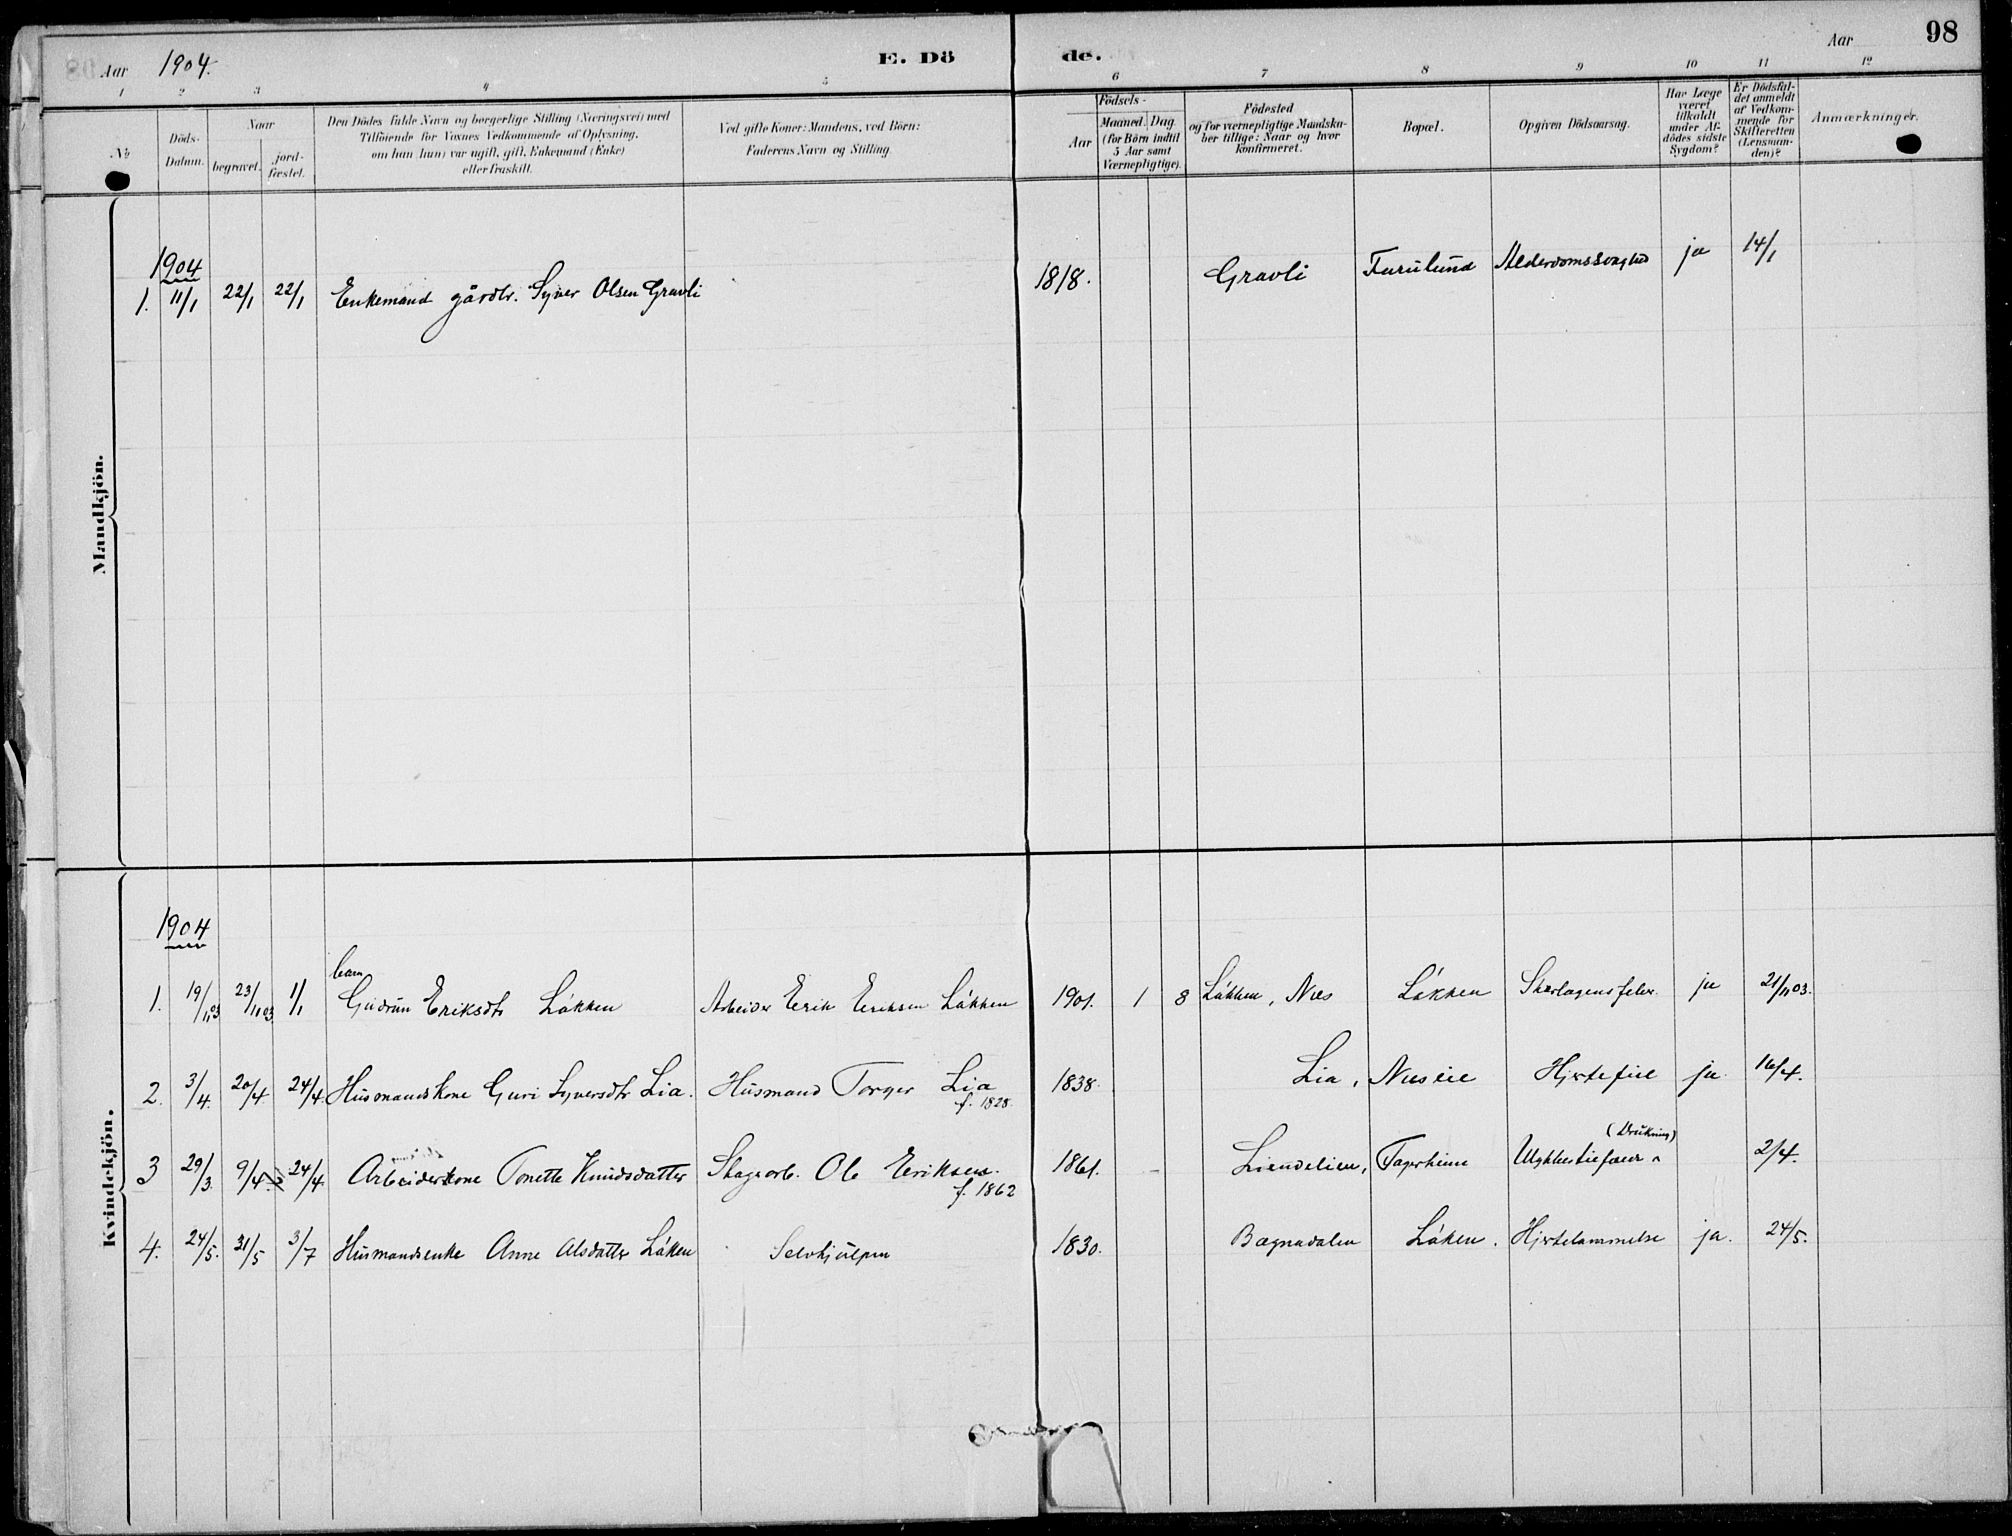 98
Aar 1904. E. Dö de. Aar
1 2 3 4 5 6 7 8 9 10 11 12
No
Döds-
Datum.
Naar
begravet.
jord-
fæstet.
Den Dödes fulde Navn og borgerlige Stilling (Næringsvei) med
Tilföiende for Voxnes Vedkommende af Oplysning,
om han (hun) var ugift, gift, Enkemand (Enke)
eller fraskilt.
Ved gifte Koner: Mandens, ved Börn:
Faderens Navn og Stilling.
Födsels-
Aar
Maaned. Dag
(for Börn indtil
5 Aar samt
Værnepligtige).
Födested
og for værnepligtige Mandska-
ber tillige: Naar og hvor
konfirmeret.
Bopæl.
Opgiven Dödsaarsag.
Har Læge
været
tilkaldt
under Af-
dödes sidste
Sygdom?
Er Dödsfal-
det anmeldt
af Vedkom-
mende for
Skifteretten
(Lensman-
den)?
Anmærkninger.
Mandkjön.
1904
1. 11/1 22/1 22/1 Enkemand gårdbr. Syver Olsen Gravli 1818. Gravli Furulund Alderdomssvaghed ja 14/1
Kvindekjön.
1904
barn
1. 19/11 03 23/11 03 1/1 Gudrun Eriksdtr Løkken Arbeider Erik Eriksen Løkken 1901. 1 8 Løkken, Nes Løkken Skarlagensfeber. ja 21/11 03.
2. 3/4. 20/4 24/4 Husmandskone Guri Syversdtr Lia. Husmand Torger Lia 1838. Lia, Neseie Hjertefeil ja 16/4.
f. 1828.
(Drukning)
3 29/3 9/4 24/4 Arbeiderkone Tonette Knudsdatter Ole Eriksen. 1861. Liendelien, Fagerheim 2/4.
f. 1862
4. 24/5. 31/5 3/7 Husmandsenke Anne Olsdatter Løken Selvhjulpen 1830. Bagnadalen Løken. Hjertelammelse ja. 24/5.